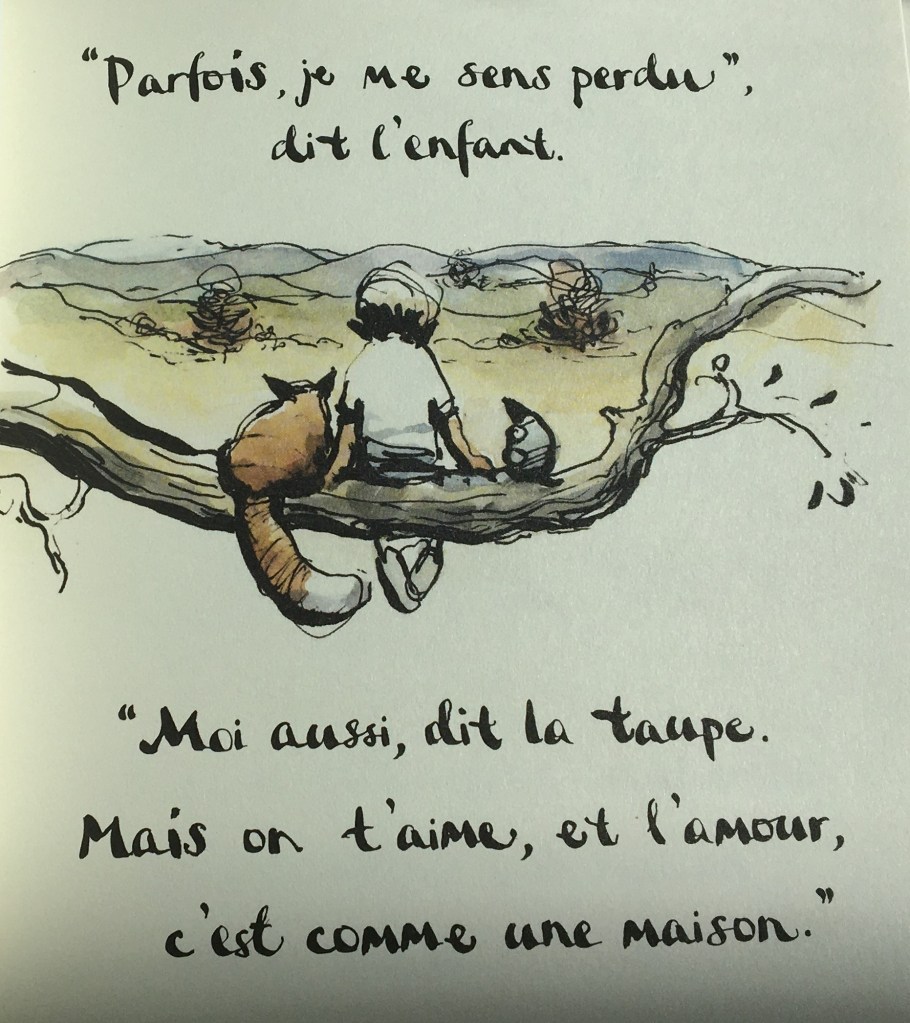 “Parfois, je me sens perdu”,
dit l'enfant.
“Moi aussi, dit la taupe.
Mais on t'aime, et l'amour,
c'est comme une maison.”